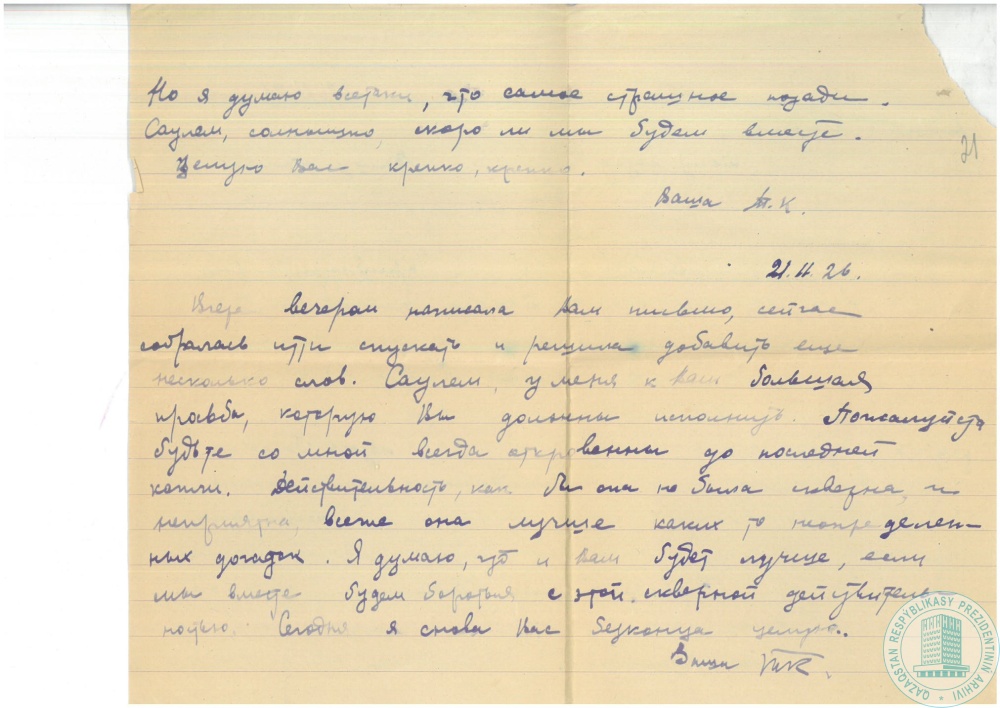 Но я думаю всетаки, что самое страшное позади.
Саулем, солнышко, скоро ли мы будем вместе.
Целую Вас крепко, крепко.
21
Ваша Т.К.
21.II.26.
Вчера вечерам написала Вам письмо, сейчас
собралась итти спускать и решила добавить еще
несколько слов. Саулем, у меня к Вам большая
прозьба, которую Вы должны исполнить. Пожалуйста
будьте со мной всегда откровенны до последней
капли. Действительность, как бы она не была скверна, и
неприятна, всеже она лучше каких то неопределен-
ных догадок. Я думаю, что и Вам будет лучше, если
мы вместе будем бороться с этой скверной действитель
ностью. Сегодня я снова Вас безконца целую.
Ваша ТК.
QAZAQSTAN RESPÝBLIKASY PREZIDENTINIŃ ARHIVI